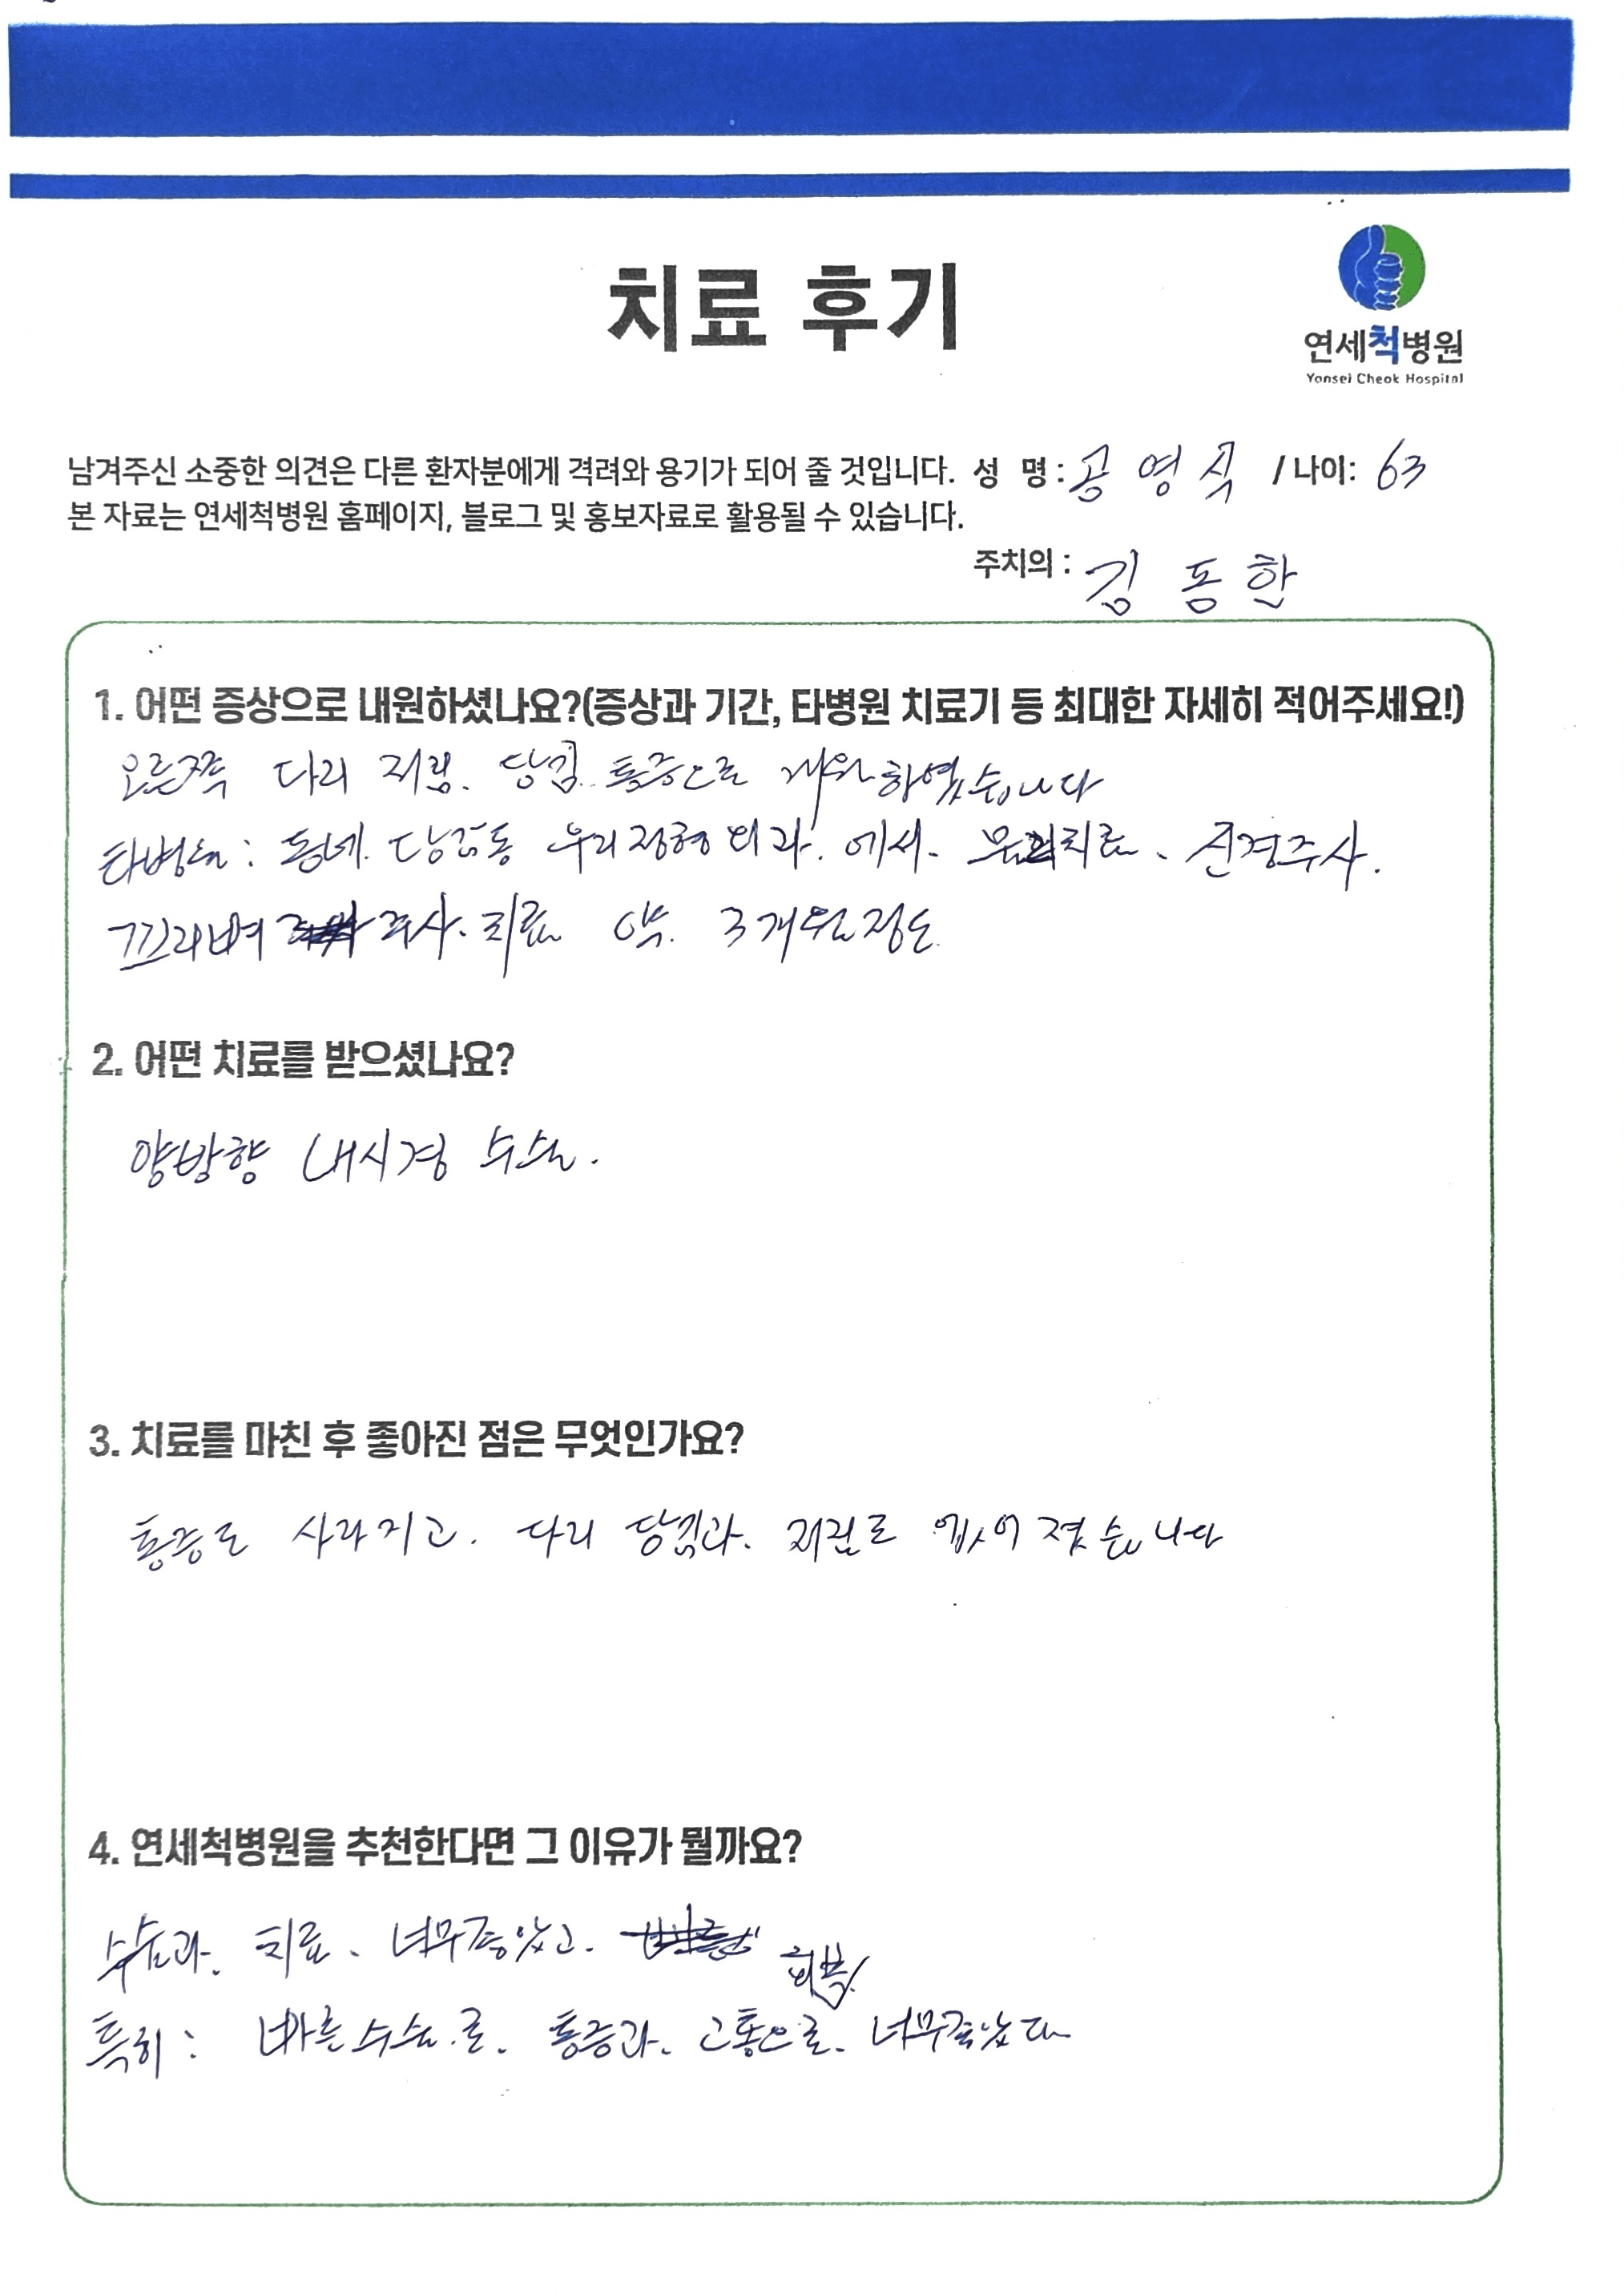 치료 후기
연세척병원
Yonsei Cheok Hospital
남겨주신 소중한 의견은 다른 환자분에게 격려와 용기가 되어 줄 것입니다. 성 명 : 공영식 / 나이: 63
본 자료는 연세척병원 홈페이지, 블로그 및 홍보자료로 활용될 수 있습니다.
주치의 : 김동한
1. 어떤 증상으로 내원하셨나요?(증상과 기간, 타병원 치료기 등 최대한 자세히 적어주세요!)
오른쪽 다리 저림. 당김. 통증으로 내원하였습니다
타병원 : 동네. 당감동 우리정형외과. 에서. 물리치료. 신경주사.
주사. 치료 약. 3개월정도.
2. 어떤 치료를 받으셨나요?
양방향 내시경 수술.
3. 치료를 마친 후 좋아진 점은 무엇인가요?
통증도 사라지고. 다리 당김과. 저림도 없어졌습니다
4. 연세척병원을 추천한다면 그 이유가 뭘까요?
수술과. 치료. 너무좋았고.
회복
특히 : 빠른수술.로. 통증과. 고통으로. 너무좋았다